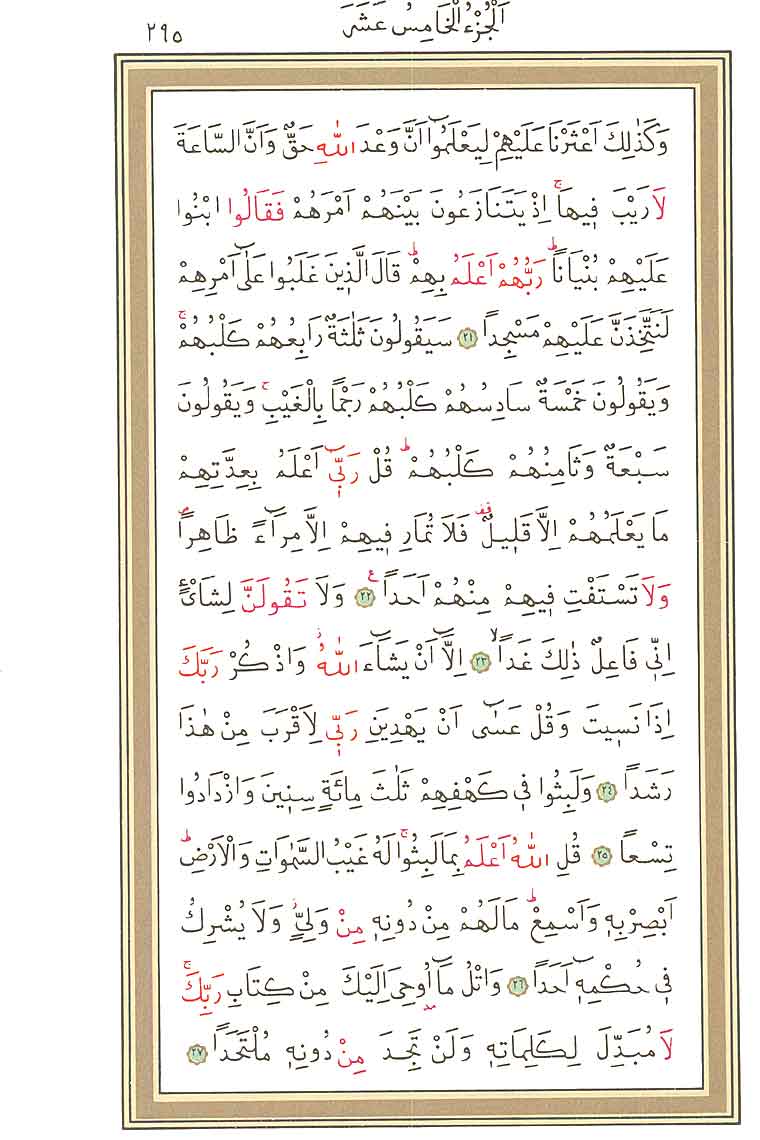 اَلْجُزْءُ الْخَامِسُ عَشَرَ
٢٩٥
وَكَذٰلِكَ اَعْثَرْنَا عَلَيْهِمْ لِيَعْلَمُٓوا اَنَّ وَعْدَ اللّٰهِ حَقٌّ وَاَنَّ السَّاعَةَ
لَا رَيْبَ فٖيهَاۚ اِذْ يَتَنَازَعُونَ بَيْنَهُمْ اَمْرَهُمْ فَقَالُوا ابْنُوا
عَلَيْهِمْ بُنْيَاناًۜ رَبُّهُمْ اَعْلَمُ بِهِمْۜ قَالَ الَّذٖينَ غَلَبُوا عَلٰٓى اَمْرِهِمْ
لَنَتَّخِذَنَّ عَلَيْهِمْ مَسْجِداً ﴿٢١﴾ سَيَقُولُونَ ثَلٰثَةٌ رَابِعُهُمْ كَلْبُهُمْۚ
وَيَقُولُونَ خَمْسَةٌ سَادِسُهُمْ كَلْبُهُمْ رَجْماً بِالْغَيْبِۚ وَيَقُولُونَ
سَبْعَةٌ وَثَامِنُهُمْ كَلْبُهُمْۜ قُلْ رَبّٖٓي اَعْلَمُ بِعِدَّتِهِمْ
مَا يَعْلَمُهُمْ اِلَّا قَلٖيلٌࣞ فَلَا تُمَارِ فٖيهِمْ اِلَّا مِرَٓاءً ظَاهِراًۖ
وَلَا تَسْتَفْتِ فٖيهِمْ مِنْهُمْ اَحَداًࣖ ﴿٢٢﴾ وَلَا تَقُولَنَّ لِشَايْءٍ
اِنّٖي فَاعِلٌ ذٰلِكَ غَداًۙ ﴿٢٣﴾ اِلَّٓا اَنْ يَشَٓاءَ اللّٰهُؗ وَاذْكُرْ رَبَّكَ
اِذَا نَسٖيتَ وَقُلْ عَسٰٓى اَنْ يَهْدِيَنِ رَبّٖي لِاَقْرَبَ مِنْ هٰذَا
رَشَداً ﴿٢٤﴾ وَلَبِثُوا فٖي كَهْفِهِمْ ثَلٰثَ مِائَةٍ سِنٖينَ وَازْدَادُوا
تِسْعاً ﴿٢٥﴾ قُلِ اللّٰهُ اَعْلَمُ بِمَا لَبِثُواۚ لَهُ غَيْبُ السَّمٰوَاتِ وَالْاَرْضِۜ
اَبْصِرْ بِهٖ وَاَسْمِعْۜ مَا لَهُمْ مِنْ دُونِهٖ مِنْ وَلِيٍّؗ وَلَا يُشْرِكُ
فٖي حُكْمِهٖٓ اَحَداً ﴿٢٦﴾ وَاتْلُ مَٓا اُو۫حِيَ اِلَيْكَ مِنْ كِتَابِ رَبِّكَۚ
لَا مُبَدِّلَ لِكَلِمَاتِهٖ وَلَنْ تَجِدَ مِنْ دُونِهٖ مُلْتَحَداً ﴿٢٧﴾